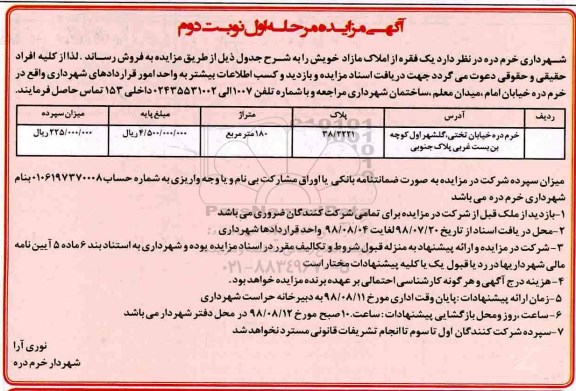 آگهی مزایده مرحله اول نوبت دوم
شهرداری خرم دره در نظر دارد یک فقره از املاک مازاد خویش را به شرح جدول ذیل از طریق مزایده به فروش رساند . لذا از کلیه افراد
حقیقی و حقوقی دعوت می گردد جهت دریافت اسناد مزایده و بازدید و کسب اطلاعات بیشتر به واحد امور قراردادهای شهرداری واقع در
خرم دره خیابان امام ،میدان معلم ،ساختمان شهرداری مراجعه و با شماره تلفن ۱۰۰۷الی ۰۲۴۳۵۵۳۱۰۰۲داخلی ۱۵۳ تماس حاصل فرمایند.
ردیف آدرس پلاک متراژ مبلغ پایه میزان سپرده
خرم دره خیابان تختی، گلشهر اول کوچه ۳۸/۳۲۲۱ ۱۸۰ متر مربع ۴/۵۰۰/۰۰۰/۰۰۰ ریال ۲۲۵/۰۰۰/۰۰۰ ریال
بن بست غربی پلاک جنوبی
میزان سپرده شرکت در مزایده به صورت ضمانتنامه بانکی یا اوراق مشارکت بی نام و یا وجه واریزی به شماره حساب ۰۱۰۶۱۹۷۳۷۰۰۰۸ بنام
شهرداری خرم دره می باشد
۱-بازدید از ملک قبل از شرکت در مزایده برای تمامی شرکت کنندگان ضروری می باشد
۲-محل دریافت اسناد از تاریخ ۹۸/۰۷/۲۰ لغایت ۹۸/۰۸/۰۴ واحد قراردادها شهرداری
۳-شرکت در مزایده و ارائه پیشنهاد به منزله قبول شروط و تکالیف مقرر در اسناد مزایده بوده و شهرداری به استناد بند ۶ ماده ۵ آیین نامه
مالی شهرداریها در رد یا قبول یک یا کلیه پیشنهادات مختار است
۴-هزینه درج آگهی و هر گونه کارشناسی احتمالی بر عهده برنده مزایده خواهد بود.
۵-زمان ارائه پیشنهادات :پایان وقت اداری مورخ ۹۸/۰۸/۱۱ به دبیرخانه حراست شهرداری
۶-ساعت ،روز و محل بازگشایی پیشنهادات : ساعت ۱۰ صبح مورخ ۹۸/۰۸/۱۲ در محل دفتر شهردار می باشد
۷-سپرده شرکت کنندگان اول تا سوم تا انجام تشریفات قانونی مسترد نخواهد شد
نوری آرا
شهردار خرم دره